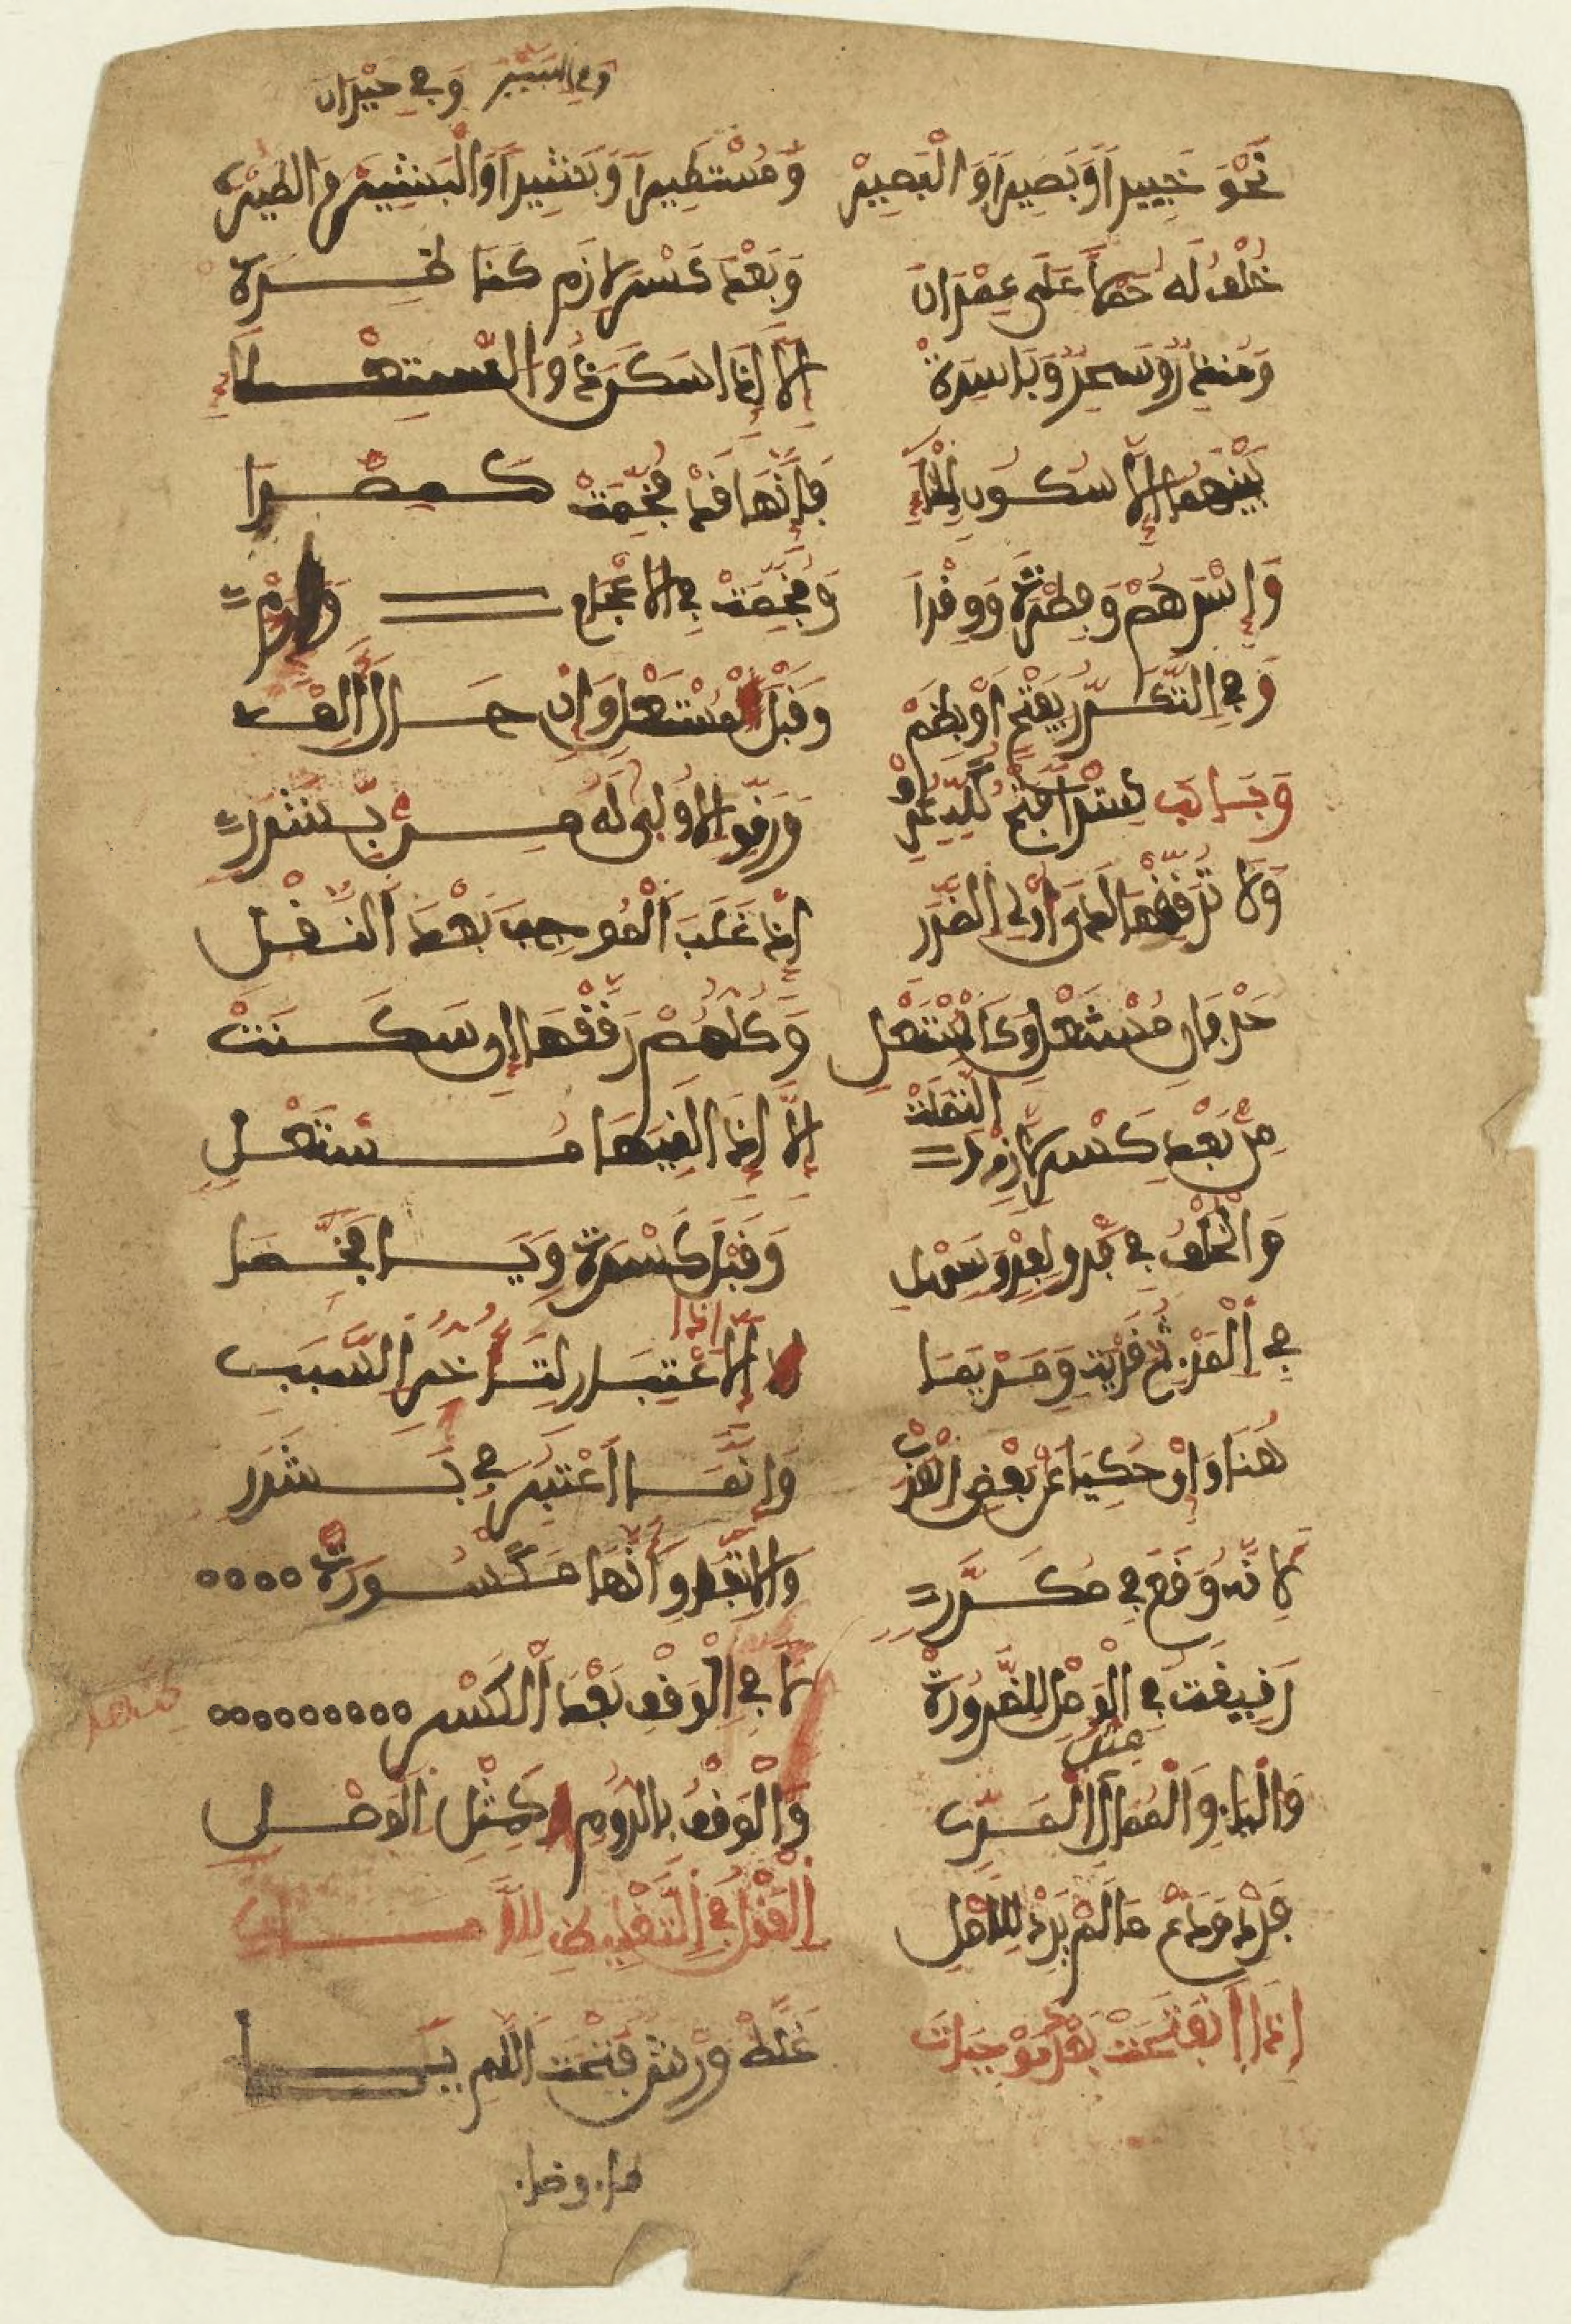 وفي السير وفي حيران
نحو خبيرا وبصيرا والبصير ومستطيرا وبشيرا والبشير والطير
خلف له حملا على عمران وبعد كسر لازم كناظرة
ومنذر وساحر وباسرة إلا إذا سكن ذو استعلاء
بينهما إلا سكون الخاء فإنها قد فخمت كمصرا
وإصرهم وفطرة ووقرا وفخمت في الأعجمي وإرم
وفي التكرر بفتح أو بضم وقبل مستعل وإن حال ألف
وباب سترا فتح كله عرف ورقق الأولى له من بشرر
ولا ترققها لدى أولي الضرر إذ غلب الموجب بعد النقل
حرفان مستعل وكالمستعلي وكلهم رققها إن سكنت
من بعد كسر لازم اتصلت إلا إذا لقيها مستعل
والخلف في فرق لفرق سهل وقبل كسرة وياء فخما
في المرء ثم قرية ومريما إذ لا اعتبار لتأخر السبب
هنا وإن حكي عن بعض العرب وإنما اعتبر في بشرر
لأنه وقع في مكرر والاتفاق أنها مكسورة
رقيقة في الوصل للضرورة لكنها في الوقف بعد الكسر
والياء والممال مثل المر والوقف بالروم كمثل الوصل
فرد ودع ما لم يرد للأصل القول في التغليظ للامات
إذا انفتحن بعد موجبات غلظ ورش فتحة اللام يلي
طاء وظاء